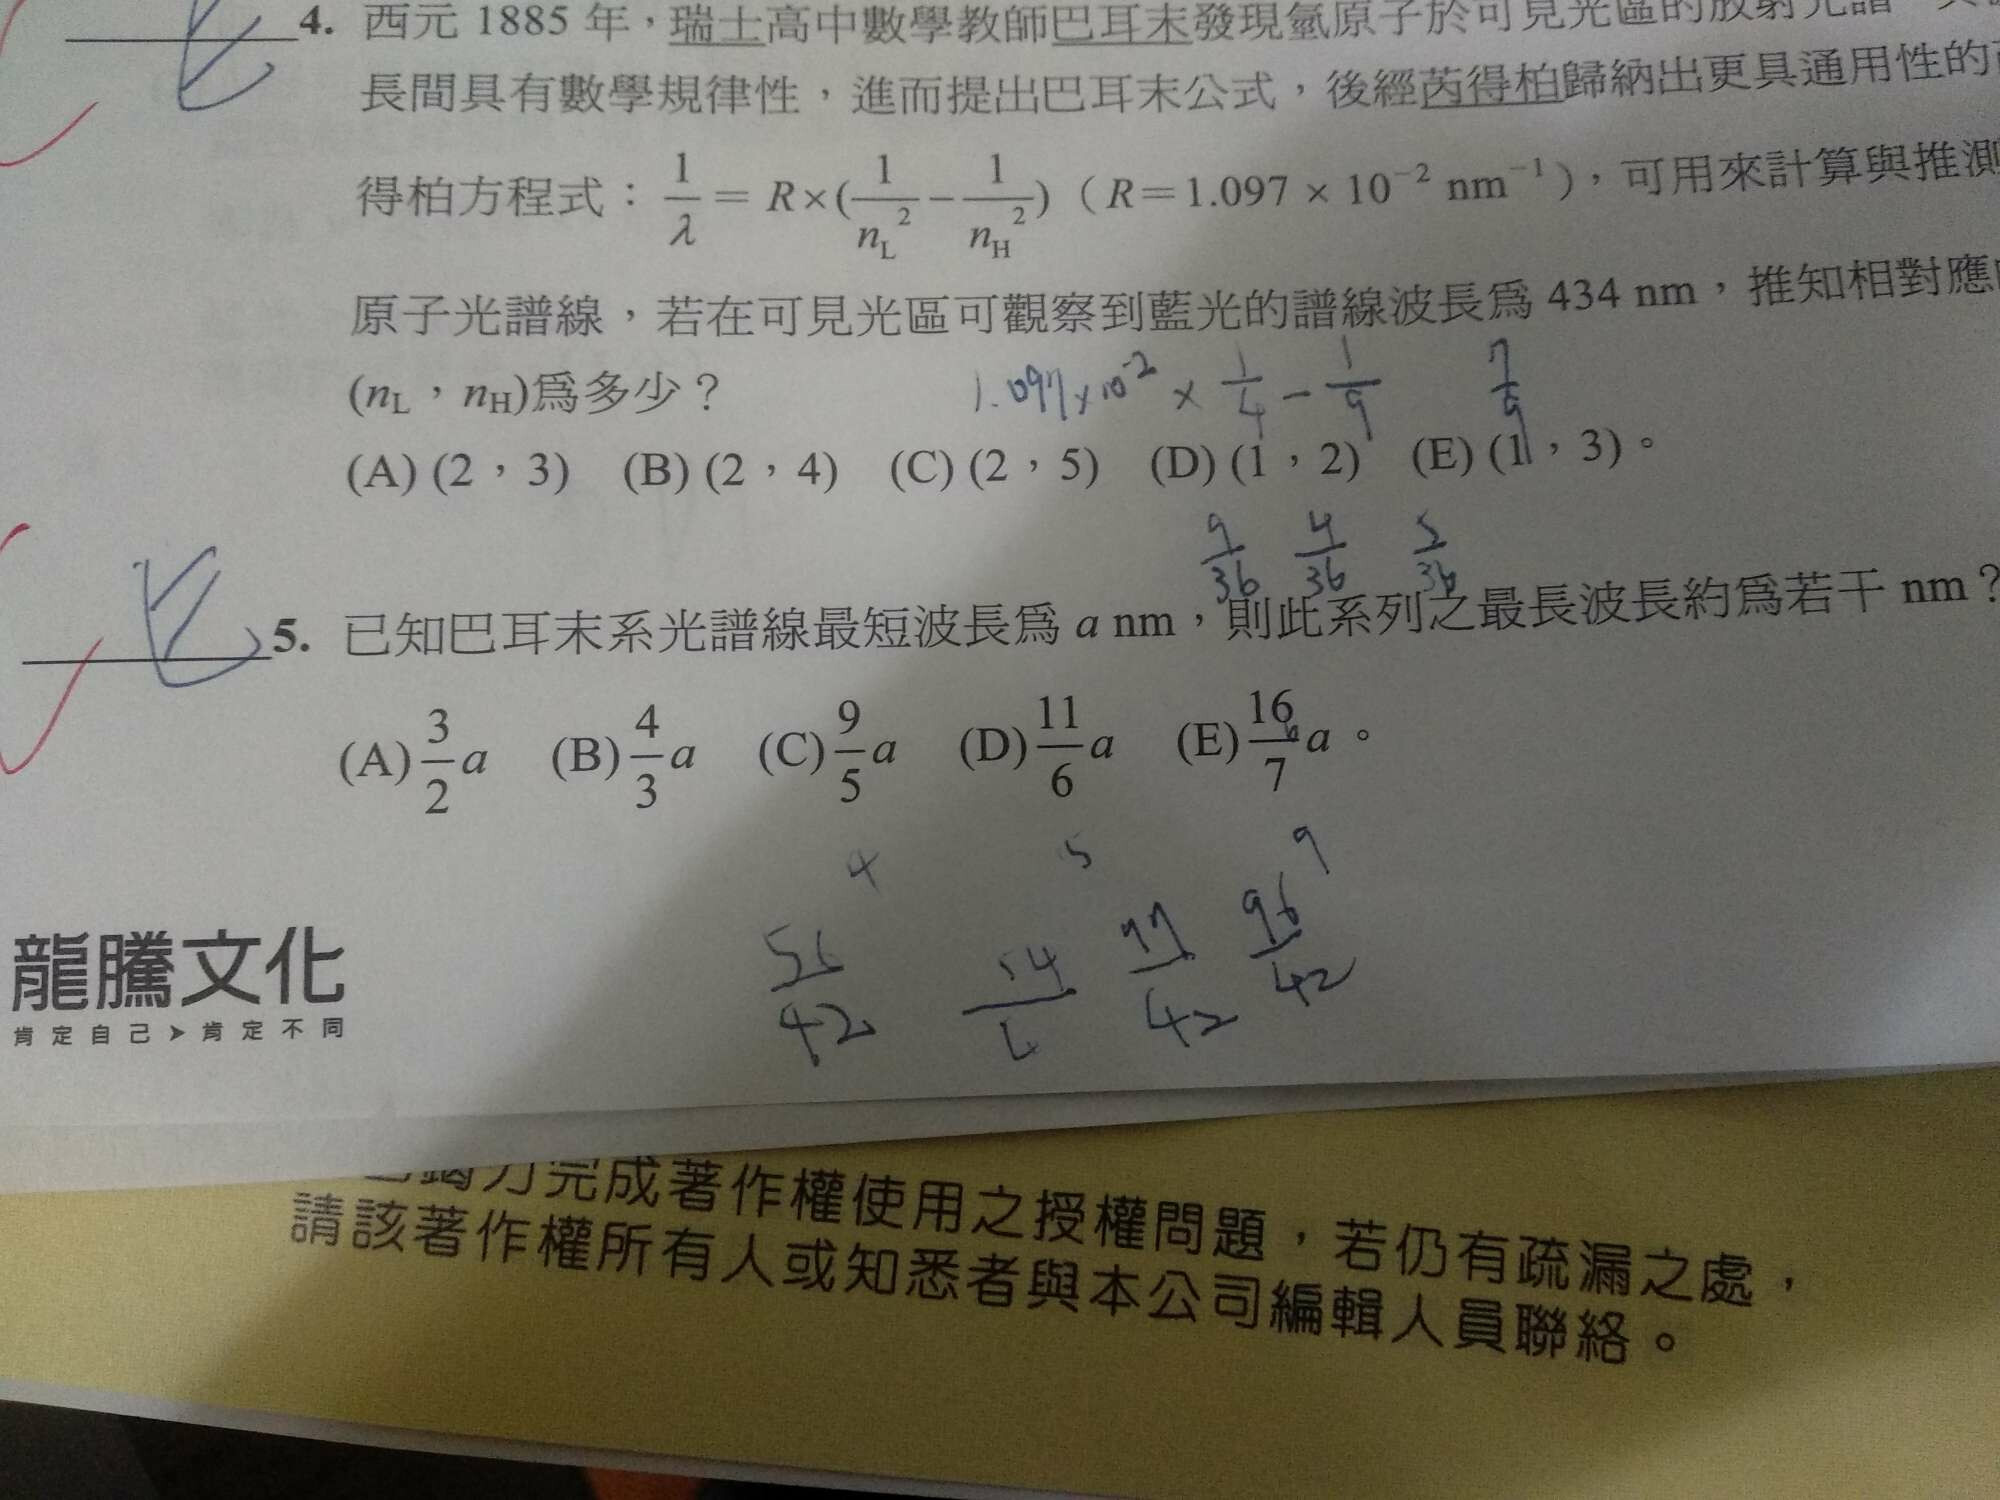 4. 西元 1885 年，瑞士高中數學教師巴耳末發現氫原子於可見光區的放射光譜，其
長間具有數學規律性，進而提出巴耳末公式，後經芮得柏歸納出更具通用性的
得柏方程式：1/λ = R×(1/n_L² − 1/n_H²)（R＝1.097 × 10⁻² nm⁻¹），可用來計算與推測
原子光譜線，若在可見光區可觀察到藍光的譜線波長為 434 nm，推知相對應
(n_L，n_H)為多少？
1.097×10⁻² × 1/4 − 1/9
(A) (2，3) (B) (2，4) (C) (2，5) (D) (1，2) (E) (1，3)。
9/36 4/36 5/36
5. 已知巴耳末系光譜線最短波長為 a nm，則此系列之最長波長約為若干 nm？
(A) 3/2 a (B) 4/3 a (C) 9/5 a (D) 11/6 a (E) 16/7 a。
4 5 9
77/42 96/42
龍騰文化
肯定自己➤肯定不同
力完成著作權使用之授權問題，若仍有疏漏之處，
請該著作權所有人或知悉者與本公司編輯人員聯絡。